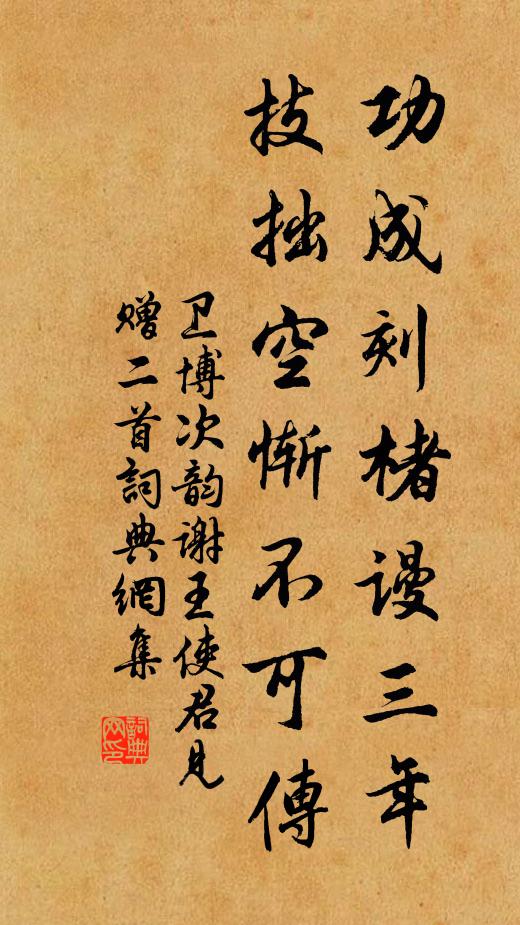 功成刻楮谩三年
技拙空惭不可傳
卫博次韵谢王使君見
赠二首詞典網集
詞典
网印